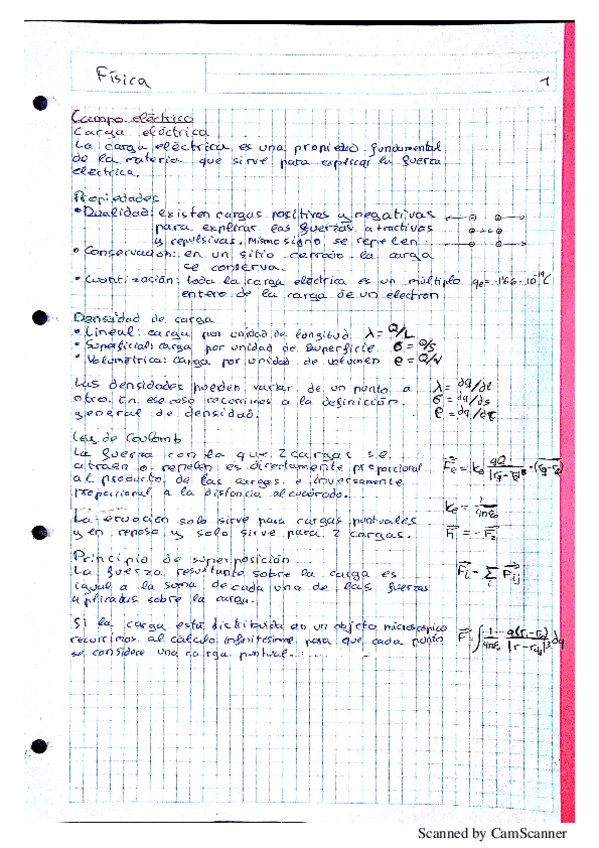 Física
1
Campo eléctrico
Carga eléctrica
La carga eléctrica es una propiedad fundamental
de la materia que sirve para explicar la fuerza
eléctrica.
Propiedades
• Dualidad: existen cargas positivas y negativas
para explicar las fuerzas atractivas
y repulsivas. Mismo signo se repelen
• Conservación: en un sitio cerrado la carga
se conserva.
• Cuantización: toda la carga eléctrica es un múltiplo qe=-1'66·10⁻¹⁹C
entero de la carga de un electron
Densidad de carga
• Lineal: carga por unidad de longitud λ = Q/L
• Superficial: carga por unidad de superficie σ = Q/S
• Volumétrica: carga por unidad de volumen ρ = Q/V
Las densidades pueden variar de un punto a λ = dq/dl
otro. En ese caso recurrimos a la definición σ = dq/ds
general de densidad. ρ = dq/dτ
Ley de Coulomb
La fuerza con la que 2 cargas se
atraen o repelen es directamente proporcional
al producto de las cargas e inversamente
proporcional a la distancia al cuadrado.
La ecuación solo sirve para cargas puntuales
y en reposo y solo sirve para 2 cargas.
Principio de superposición
La fuerza resultante sobre la carga es
igual a la suma de cada una de las fuerzas
aplicadas sobre la carga.
Si la carga está distribuida en un objeto microscópico
recurrimos al cálculo infinitesimal para que cada punto
se considere una carga puntual.
Scanned by CamScanner